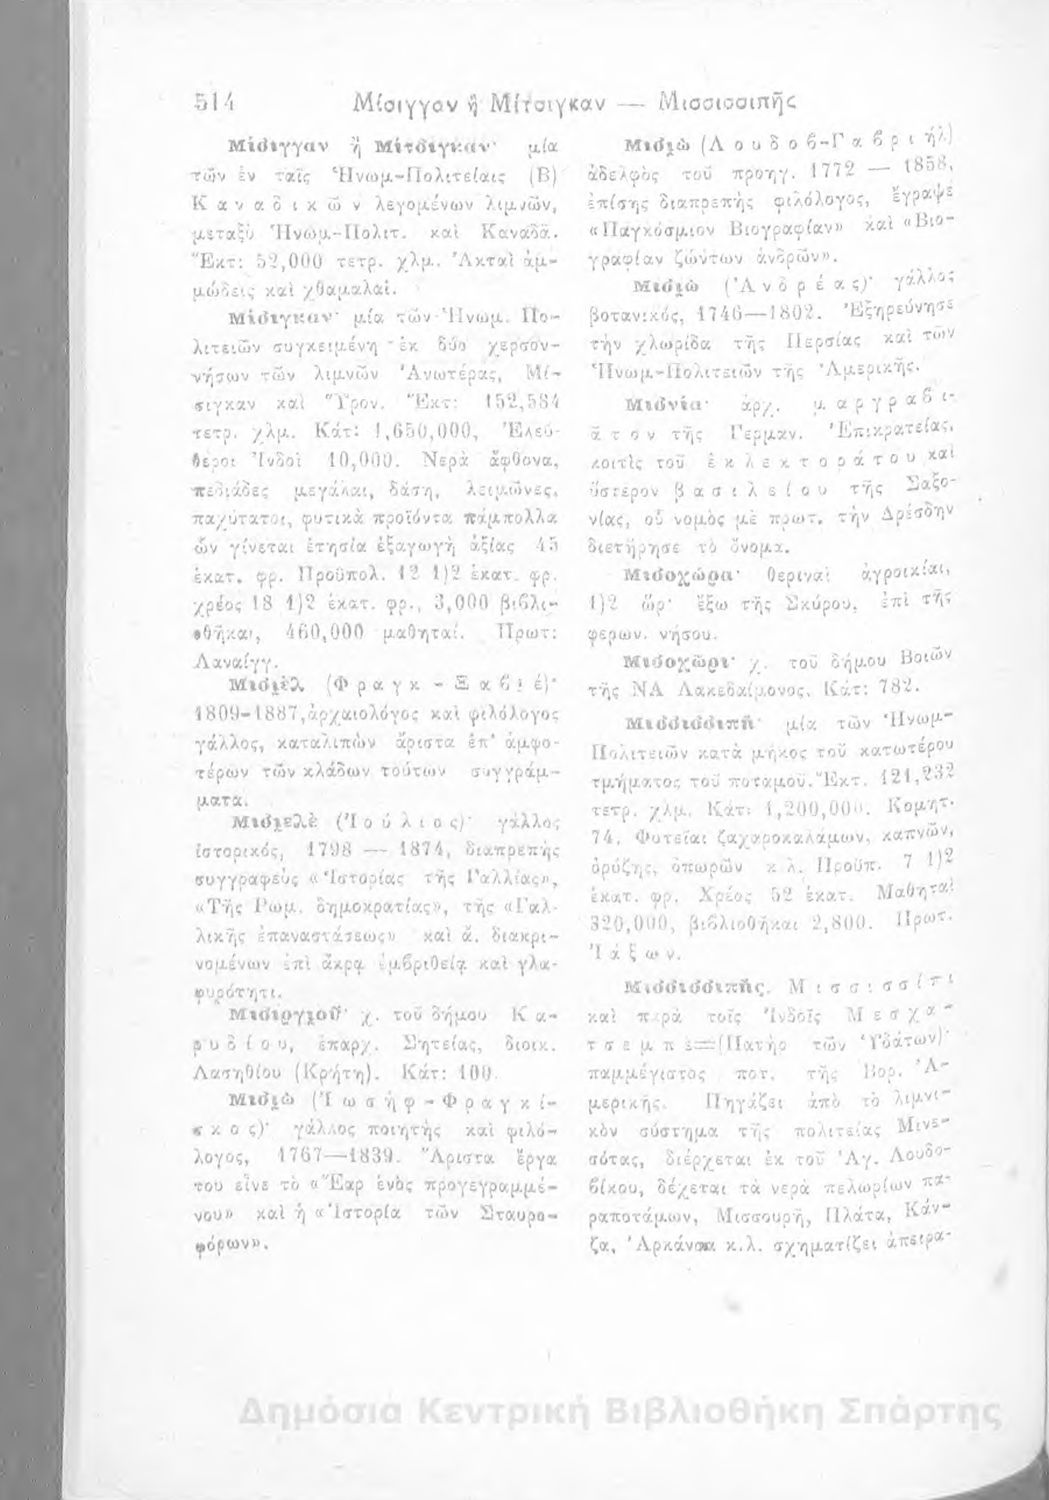 514 Μίσιγγαν ἢ Μίτσιγκαν — Μισσισσιπῆς
Μίσιγγαν ἢ Μίτσιγκαν· μία
τῶν ἐν ταῖς Ἡνωμ-Πολιτείαις (Β)
Καναδικῶν λεγομένων λιμνῶν,
μεταξὺ Ἡνωμ.-Πολιτ. καὶ Καναδᾶ.
Ἔκτ: 52,000 τετρ. χλμ. Ἀκταὶ ἀμ-
μώδεις καὶ χθαμαλαί.
Μίσιγκαν· μία τῶν Ἡνωμ. Πο-
λιτειῶν συγκειμένη ἐκ δύο χερσον-
νήσων τῶν λιμνῶν Ἀνωτέρας, Μί-
σιγκαν καὶ Ὕρον. Ἔκτ: 152,584
τετρ. χλμ. Κάτ: 1,650,000, Ἐλεύ-
θεροι Ἰνδοὶ 10,000. Νερὰ ἄφθονα,
πεδιάδες μεγάλαι, δάση, λειμῶνες,
παχύτατοι, φυτικὰ προϊόντα πάμπολλα
ὧν γίνεται ἐτησία ἐξαγωγὴ ἀξίας 45
ἑκατ. φρ. Προϋπολ. 12 1)2 ἑκατ. φρ.
χρέος 18 1)2 ἑκατ. φρ., 3,000 βιβλι-
οθῆκαι, 460,000 μαθηταί. Πρωτ:
Λαναίγγ.
Μισιὲλ (Φραγκ - Ξαβιέ)·
1809-1887, ἀρχαιολόγος καὶ φιλόλογος
γάλλος, καταλιπὼν ἄριστα ἐπ' ἀμφο-
τέρων τῶν κλάδων τούτων συγγράμ-
ματα.
Μισιελὲ (Ἰούλιος)· γάλλος
ἱστορικός, 1798 — 1874, διαπρεπὴς
συγγραφεὺς «Ἱστορίας τῆς Γαλλίας»,
«Τῆς Ρωμ. δημοκρατίας», τῆς «Γαλ-
λικῆς ἐπαναστάσεως» καὶ ἄ. διακρι-
νομένων ἐπὶ ἄκρᾳ ἐμβριθείᾳ καὶ γλα-
φυρότητι.
Μισιργιοῦ· χ. τοῦ δήμου Κα-
ρυδίου, ἐπαρχ. Σητείας, διοικ.
Λασηθίου (Κρήτη). Κάτ: 100.
Μισιὼ (Ἰωσὴφ - Φραγκί-
σκος)· γάλλος ποιητὴς καὶ φιλό-
λογος, 1767—1839. Ἄριστα ἔργα
του εἶνε τὸ «Ἔαρ ἑνὸς προγεγραμμέ-
νου» καὶ ἡ «Ἱστορία τῶν Σταυρο-
φόρων».
Μισιὼ (Λουδοβ-Γαβριήλ)
ἀδελφὸς τοῦ προηγ. 1772 — 1858,
ἐπίσης διαπρεπὴς φιλόλογος, ἔγραψε
«Παγκόσμιον Βιογραφίαν» καὶ «Βιο-
γραφίαν ζώντων ἀνδρῶν».
Μισιὼ (Ἀνδρέας)· γάλλος
βοτανικός, 1746—1802. Ἐξηρεύνησε
τὴν χλωρίδα τῆς Περσίας καὶ τῶν
Ἡνωμ.-Πολιτειῶν τῆς Ἀμερικῆς.
Μισνία· ἀρχ. μαργραβι-
ᾶτον τῆς Γερμαν. Ἐπικρατείας,
κοιτὶς τοῦ ἐκλεκτοράτου καὶ
ὕστερον βασιλείου τῆς Σαξο-
νίας, οὗ νομὸς μὲ πρωτ. τὴν Δρέσδην
διετήρησε τὸ ὄνομα.
Μισοχώρα· θεριναὶ ἀγροικίαι,
1)2 ὥρ· ἔξω τῆς Σκύρου, ἐπὶ τῆς
φερων. νήσου.
Μισοχῶρι· χ. τοῦ δήμου Βοιῶν
τῆς ΝΑ Λακεδαίμονος. Κάτ: 782.
Μισσισσιπῆ· μία τῶν Ἡνωμ-
Πολιτειῶν κατὰ μῆκος τοῦ κατωτέρου
τμήματος τοῦ ποταμοῦ. Ἔκτ. 121,232
τετρ. χλμ. Κάτ: 1,200,000. Κομητ.
74. Φυτεῖαι ζαχαροκαλάμων, καπνῶν,
ὀρύζης, ὀπωρῶν κ.λ. Προϋπ. 7 1)2
ἑκατ. φρ. Χρέος 52 ἑκατ. Μαθηταὶ
320,000, βιβλιοθῆκαι 2,800. Πρωτ.
Ἰάξων.
Μισσισσιπῆς. Μισσισσίπι
καὶ παρὰ τοῖς Ἰνδοῖς Μεσχα-
τσεμπέ=(Πατὴρ τῶν Ὑδάτων)·
παμμέγιστος ποτ. τῆς Βορ. Ἀ-
μερικῆς. Πηγάζει ἀπὸ τὸ λιμνι-
κὸν σύστημα τῆς πολιτείας Μινε-
σότας, διέρχεται ἐκ τοῦ Ἁγ. Λουδο-
βίκου, δέχεται τὰ νερὰ πελωρίων πα-
ραποτάμων, Μισσουρῆ, Πλάτα, Κάν-
ζα, Ἀρκάνσα κ.λ. σχηματίζει ἀπειρα-
Δημόσια Κεντρική Βιβλιοθήκη Σπάρτης